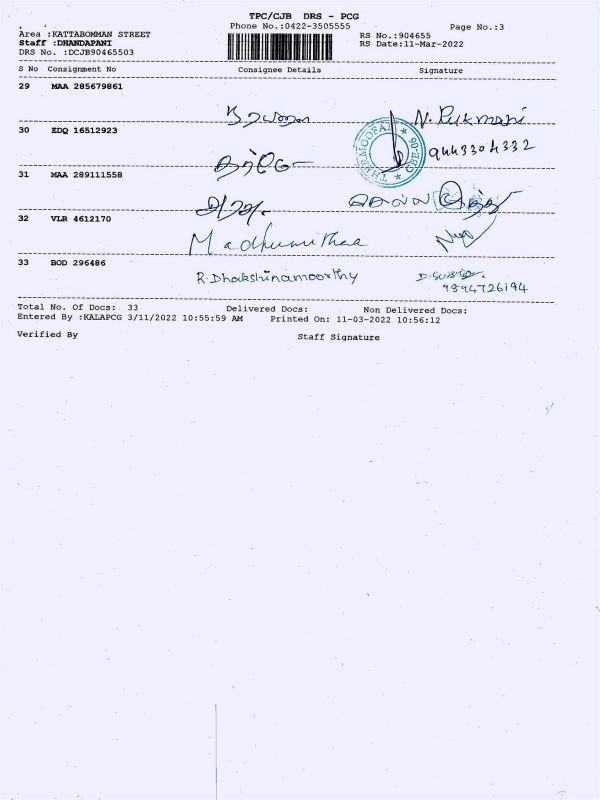 TPC/CJB DRS - PCG
Phone No.:0422-3505555
Page No.:3
Area :KATTABOMMAN STREET
RS No.:904655
Staff :DHANDAPANI
RS Date:11-Mar-2022
DRS No. :DCJB90465503
S No Consignment No Consignee Details Signature
29 MAA 285679861
N. Rukmani
30 EDQ 16512923
9443304332
31 MAA 289111558
32 VLR 4612170
Madhumithaa
33 BOD 296486
R.Dhakshinamoorthy
9894726194
Total No. Of Docs: 33 Delivered Docs: Non Delivered Docs:
Entered By :KALAPCG 3/11/2022 10:55:59 AM Printed On: 11-03-2022 10:56:12
Verified By Staff Signature